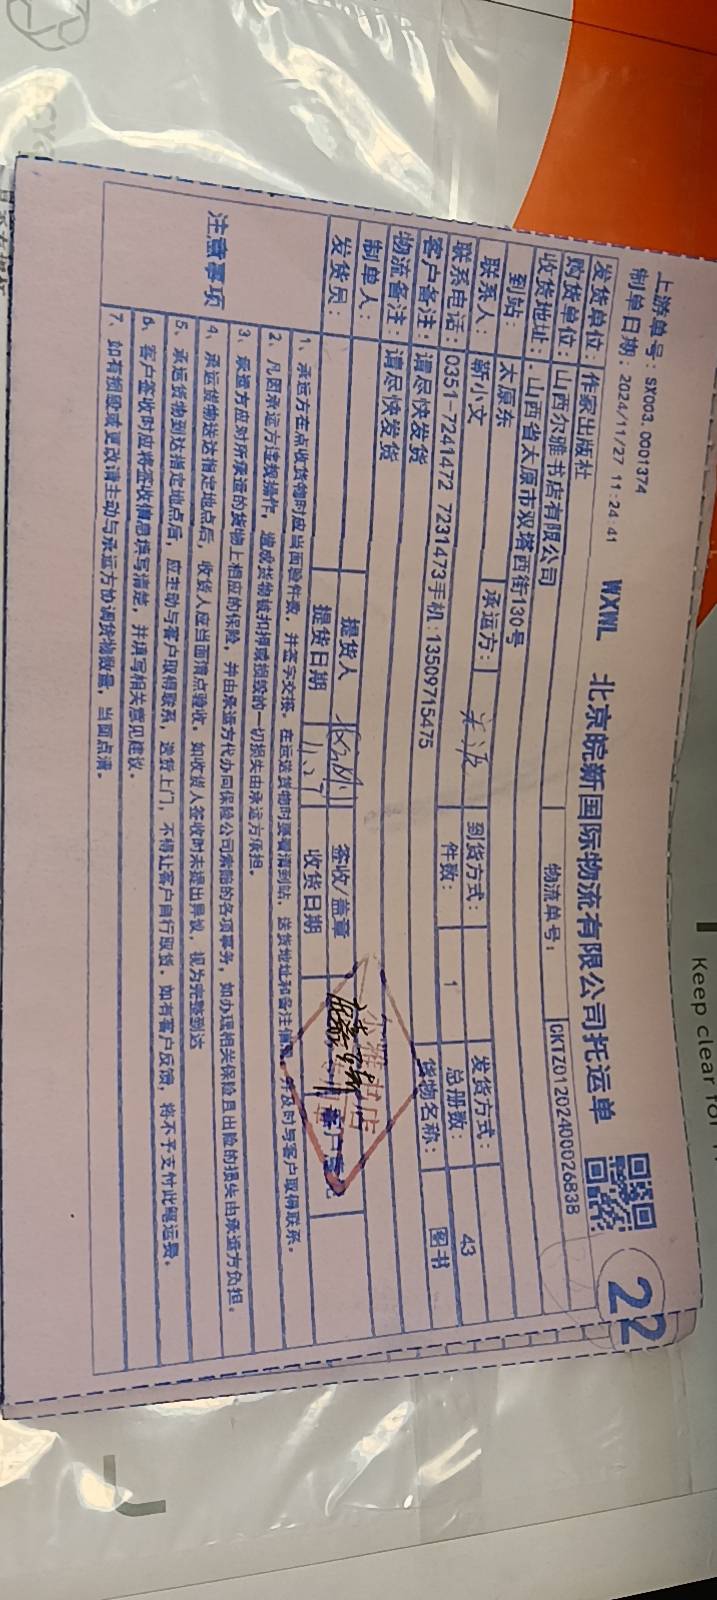 Keep clear
上游单号：SY003.0001374
制单日期：2024/11/27 11:24:41
WXWL 北京皖新国际物流有限公司托运单
22
发货单位：作家出版社
物流单号：CKTZ01202400026838
购货单位：山西尔雅书店有限公司
收货地址：山西省太原市双塔西街130号
到站：太原东
承运方：
到货方式：
发货方式：
联系人：靳小文
件数：1
总册数：43
联系电话：0351-7241472 7231473手机:13509715475
货物名称：图书
客户备注：请尽快发货
物流备注：请尽快发货
制单人：
提货人
签收/盖章
客户意见
发货员：
提货日期 11.27
收货日期
注意事项
1、承运方在点收货物时应当面验件数，并签字交接。在运送货物时要看清到站、送货地址和备注信息，并及时与客户取得联系。
2、凡因承运方违规操作，造成货物被扣押或损毁的一切损失由承运方承担。
3、承运方应对所承运的货物上相应的保险，并由承运方代办向保险公司索赔的各项事务，如办理相关保险且出险的损失由承运方负担。
4、承运货物送达指定地点后，收货人应当面清点验收。如收货人签收时未提出异议，视为完整到达
5、承运货物到达指定地点后，应主动与客户取得联系，送货上门，不得让客户自行取货。如有客户反馈，将不予支付此趟运费。
6、客户签收时应将签收信息填写清楚，并填写相关意见建议。
7、如有损毁或更改请主动与承运方协调货物数量，当面点清。